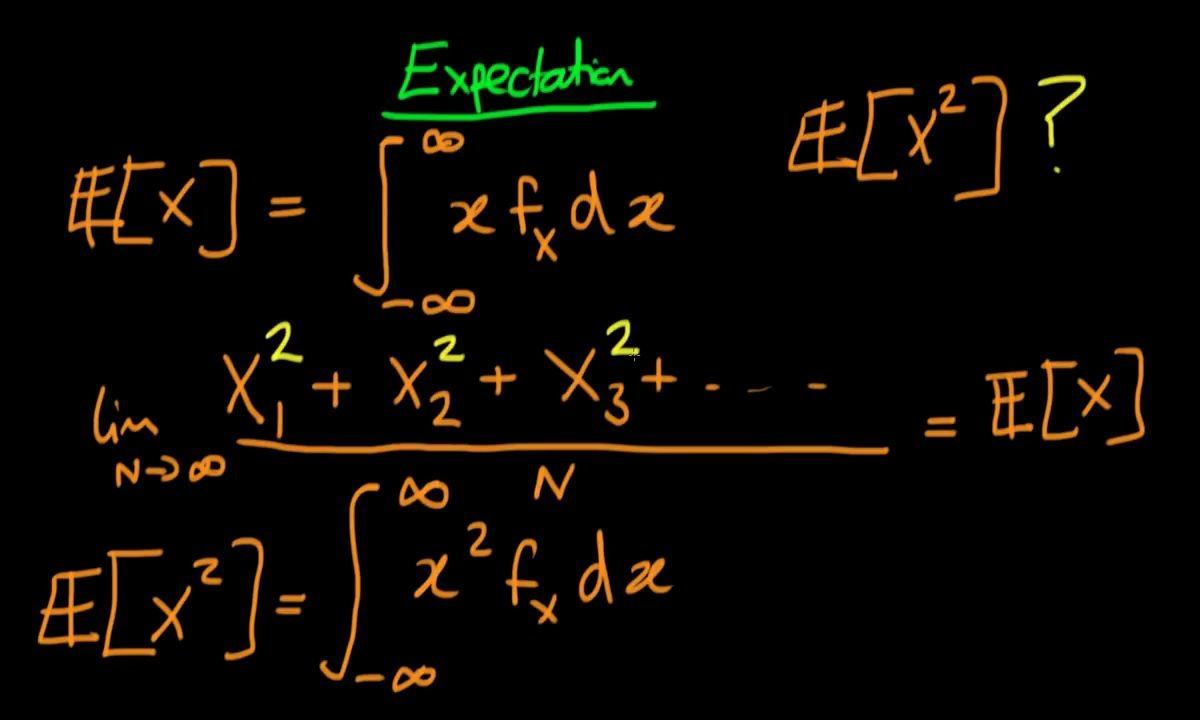 Expectation
𝔼[X] = ∫_{-∞}^{∞} x f_X dx
𝔼[X²] ?
lim_{N→∞} (X₁² + X₂² + X₃² + . . . .) / N = 𝔼[X]
𝔼[X²] = ∫_{-∞}^{∞} x² f_X dx